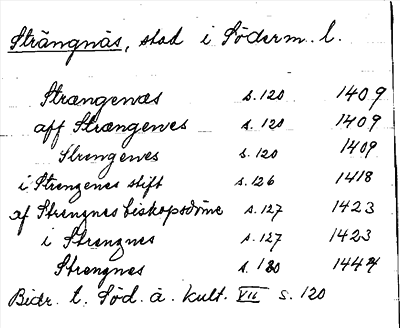 Strängnäs, stad i Söderm. l.
Strængenæs s. 120 1409
aff Strængenes s. 120 1409
Strengenes s. 120 1409
i Strengenes stift s. 126 1418
af Strengnes biskopsdöme s. 127 1423
i Strengnes s. 127 1423
Strengnes s. 130
Bidr. t. Söd. ä. kult. VII s. 120